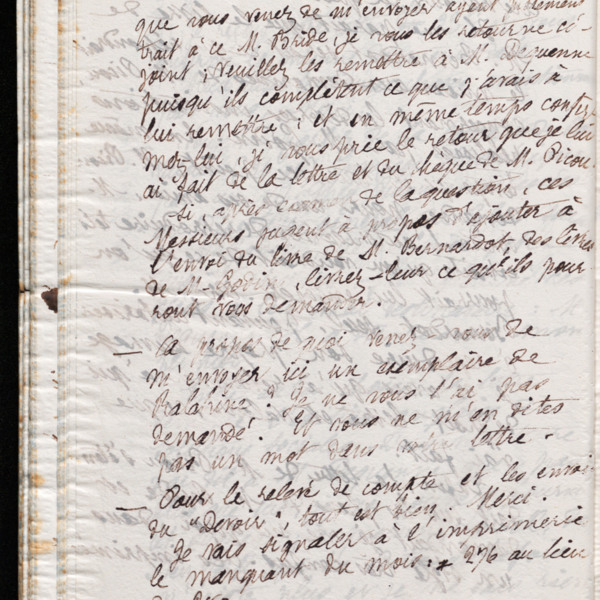 que vous venez de m'envoyer ayant justement
trait à ce M. Bride, je vous les retourne ci-
joint ; veuillez les remettre à M. Dequenne
puisqu'ils complètent ce que j'avais à
lui remettre ; et en même temps confir-
mez-lui, je vous prie le retour que je lui
ai fait de la lettre et du chèque de M. Picou.
Si, après examen de la question, ces
Messieurs jugent à propos d'ajouter à
l'envoi du livre de M. Bernardot, des livres
de M. Godin, livrez-leur ce qu'ils pour-
ront vous demander.
— À propos de quoi venez-vous de
m'envoyer ici un exemplaire de
? Je ne vous l'ai pas
demandé. Et vous ne m'en dites
pas un mot dans lettre.
— Pour le relevé de compte et les envois
du "Devoir", tout est bien. Merci.
Je vais signaler à l'imprimerie
le manquant du mois : 276 au lieu